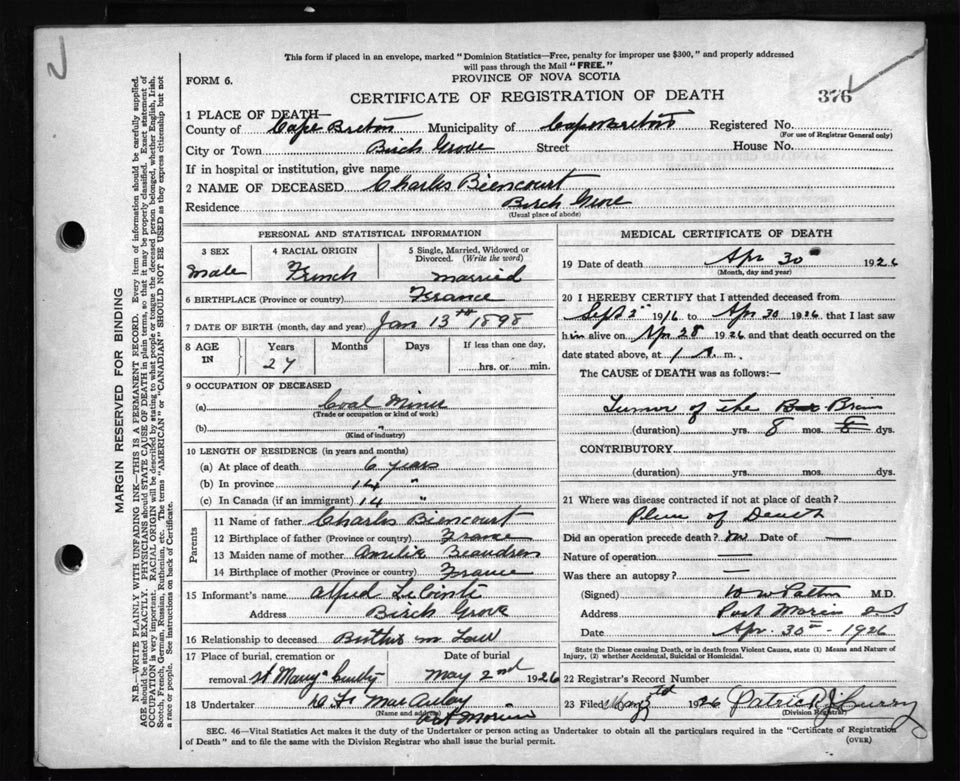 This form if placed in an envelope, marked "Dominion Statistics—Free, penalty for improper use $300," and properly addressed
will pass through the Mail "FREE."
FORM 6.
PROVINCE OF NOVA SCOTIA
CERTIFICATE OF REGISTRATION OF DEATH
376
1 PLACE OF DEATH—
County of Cape Breton Municipality of Cape Breton Registered No.
(For use of Registrar General only)
City or Town Birch Grove Street House No.
If in hospital or institution, give name
2 NAME OF DECEASED Charles Biencourt
Residence Birch Grove
(Usual place of abode)
PERSONAL AND STATISTICAL INFORMATION
3 SEX 4 RACIAL ORIGIN 5 Single, Married, Widowed or Divorced. (Write the word)
Male French Married
6 BIRTHPLACE (Province or country) France
7 DATE OF BIRTH (month, day and year) Jan 13th 1898
8 AGE IN Years Months Days If less than one day,
27 hrs. or min.
9 OCCUPATION OF DECEASED
(a) Coal Miner
(Trade or occupation or kind of work)
(b) "
(Kind of industry)
10 LENGTH OF RESIDENCE (in years and months)
(a) At place of death 6 years
(b) In province 14 "
(c) In Canada (if an immigrant) 14 "
Parents
11 Name of father Charles Biencourt
12 Birthplace of father (Province or country) France
13 Maiden name of mother Amelia
14 Birthplace of mother (Province or country) France
15 Informant's name Alfred LeCointe
Address Birch Grove
16 Relationship to deceased Brother in Law
17 Place of burial, cremation or Date of burial
removal St Mary's May 2nd 1926
18 Undertaker MacAulay
(Name and address)
Port Morien
MEDICAL CERTIFICATE OF DEATH
19 Date of death Apr 30 1926
(Month, day and year)
20 I HEREBY CERTIFY that I attended deceased from
Sept 1916 to Apr 30 1926 that I last saw
him alive on Apr 28 1926 and that death occurred on the
date stated above, at 1 A. m.
The CAUSE of DEATH was as follows:—
Tumor of the Brain
(duration) yrs. 8 mos. dys.
CONTRIBUTORY
(duration) yrs. mos. dys.
21 Where was disease contracted if not at place of death?
Place of Death
Did an operation precede death? no Date of —
Nature of operation —
Was there an autopsy? —
(Signed) M.D.
Address Port Morien N S
Date Apr. 30 - 1926
State the Disease causing Death, or in death from Violent Causes, state (1) Means and Nature of
Injury, (2) whether Accidental, Suicidal or Homicidal.
22 Registrar's Record Number
23 Filed May 1926 Patrick J Curry
(Division Registrar)
SEC. 46—Vital Statistics Act makes it the duty of the Undertaker or person acting as Undertaker to obtain all the particulars required in the "Certificate of Registration
of Death" and to file the same with the Division Registrar who shall issue the burial permit.
(OVER)
MARGIN RESERVED FOR BINDING
N.B.—WRITE PLAINLY WITH UNFADING INK—THIS IS A PERMANENT RECORD. Every item of information should be carefully supplied.
AGE should be stated EXACTLY. PHYSICIANS should STATE CAUSE OF DEATH in plain terms, so that it may be properly classified. Exact statement of
OCCUPATION is very important. RACIAL ORIGIN will be described by stating to what people or tongue the deceased person belonged, whether English, Irish,
Scotch, French, German, Russian, Ruthenian, etc. The terms "AMERICAN" or "CANADIAN" SHOULD NOT BE USED as they express citizenship but not
a race or people. See instructions on back of Certificate.